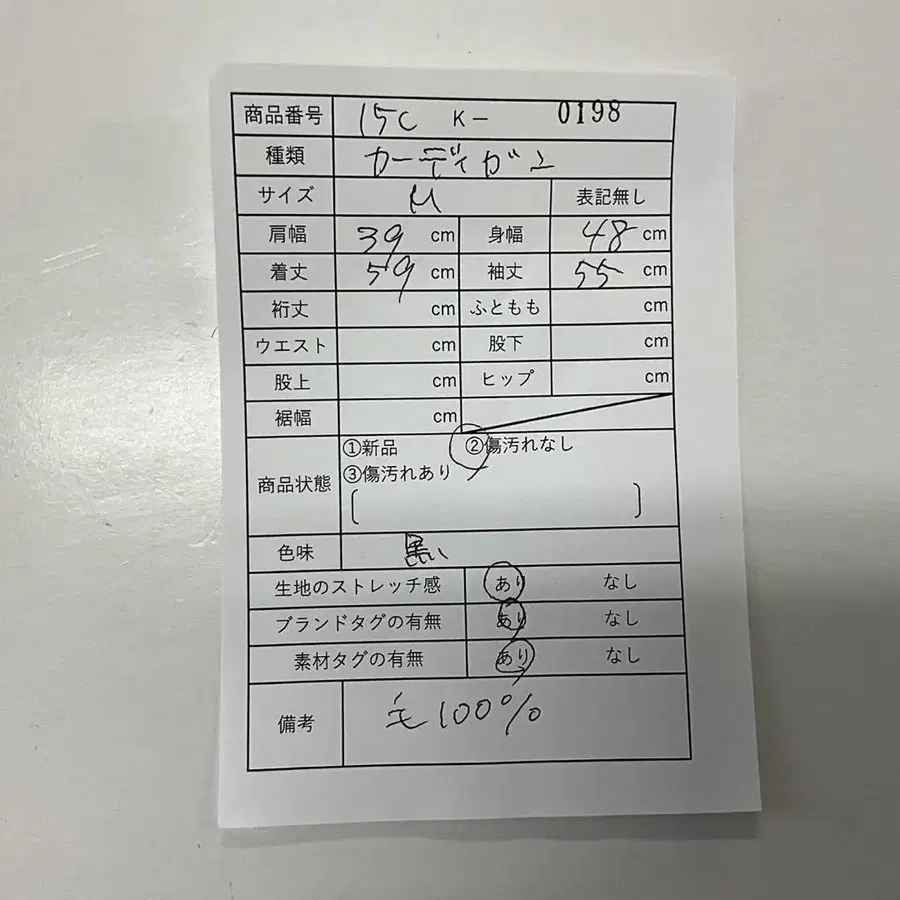 商品番号 15C K- 0198
種類 カーディガン
サイズ M 表記無し
肩幅 39 cm 身幅 48 cm
着丈 59 cm 袖丈 55 cm
裄丈 cm ふともも cm
ウエスト cm 股下 cm
股上 cm ヒップ cm
裾幅 cm
商品状態 ①新品 ②傷汚れなし
③傷汚れあり
[ ]
色味 黒い
生地のストレッチ感 あり なし
ブランドタグの有無 あり なし
素材タグの有無 あり なし
備考 毛100%